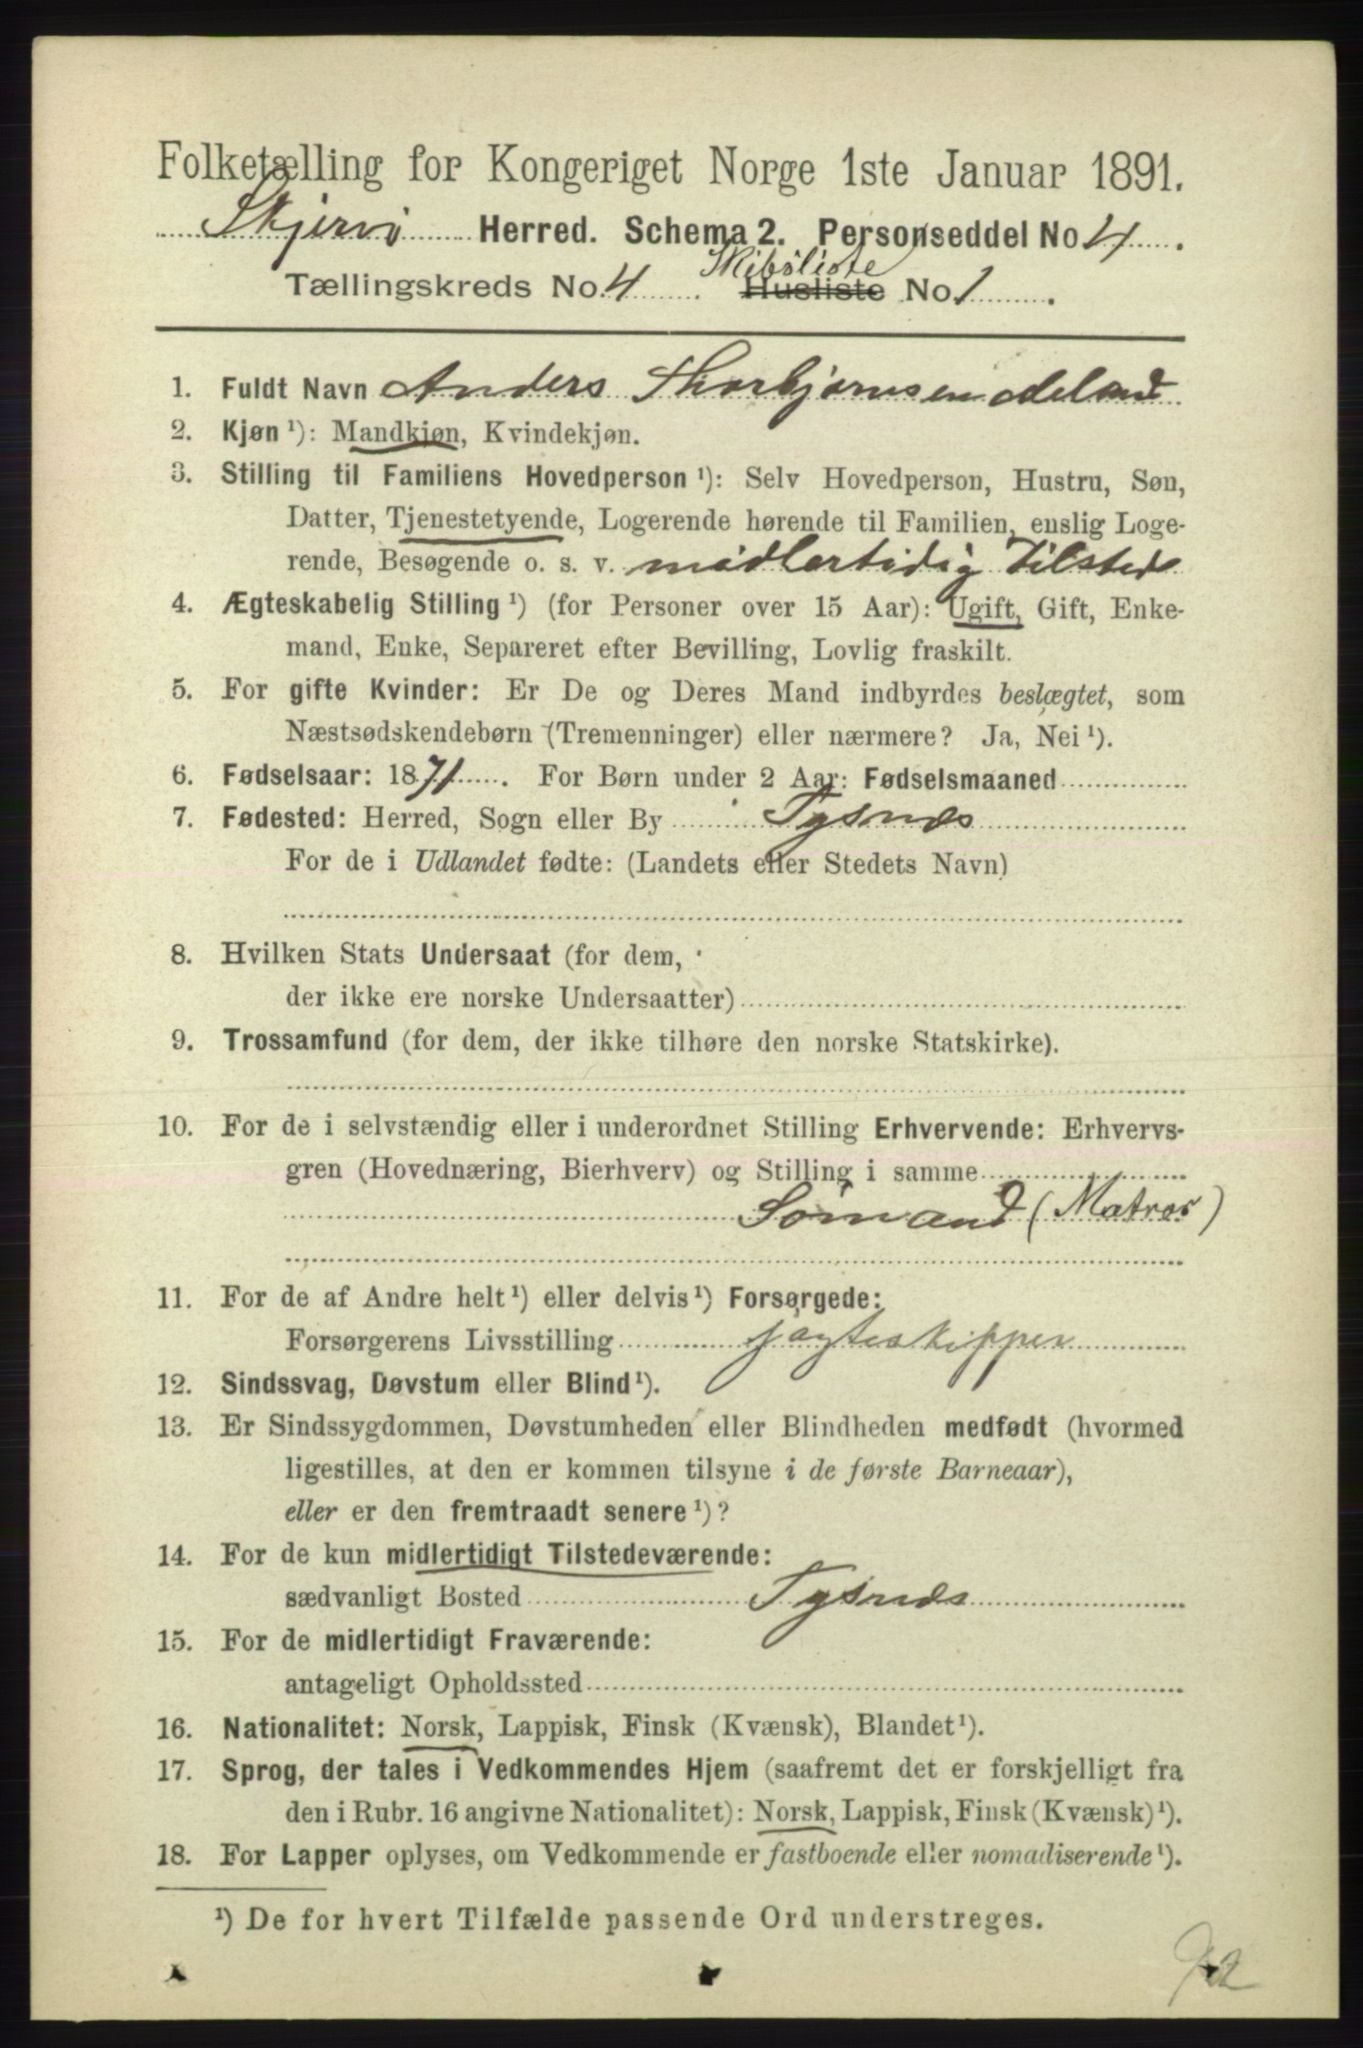 Folketælling for Kongeriget Norge 1ste Januar 1891.
Skjervø Herred. Schema 2. Personseddel No 4.
Tællingskreds No. 4. Skibsliste Husliste No 1.
1. Fuldt Navn Anders Thorbjørnsen Meland
2. Kjøn ¹): Mandkjøn, Kvindekjøn.
3. Stilling til Familiens Hovedperson ¹): Selv Hovedperson, Hustru, Søn,
Datter, Tjenestetyende, Logerende hørende til Familien, enslig Loge-
rende, Besøgende o. s. v. midlertidig Tilstede
4. Ægteskabelig Stilling ¹) (for Personer over 15 Aar): Ugift, Gift, Enke-
mand, Enke, Separeret efter Bevilling, Lovlig fraskilt.
5. For gifte Kvinder: Er De og Deres Mand indbyrdes beslægtet, som
Næstsødskendebørn (Tremenninger) eller nærmere? Ja, Nei ¹).
6. Fødselsaar: 1871. For Børn under 2 Aar: Fødselsmaaned
7. Fødested: Herred, Sogn eller By Tysnæs
For de i Udlandet fødte: (Landets eller Stedets Navn)
8. Hvilken Stats Undersaat (for dem,
der ikke ere norske Undersaatter)
9. Trossamfund (for dem, der ikke tilhøre den norske Statskirke).
10. For de i selvstændig eller i underordnet Stilling Erhvervende: Erhvervs-
gren (Hovednæring, Bierhverv) og Stilling i samme
Sømand (Matros)
11. For de af Andre helt ¹) eller delvis ¹) Forsørgede:
Forsørgerens Livsstilling jagteskipper
12. Sindssvag, Døvstum eller Blind ¹).
13. Er Sindssygdommen, Døvstumheden eller Blindheden medfødt (hvormed
ligestilles, at den er kommen tilsyne i de første Barneaar),
eller er den fremtraadt senere ¹)?
14. For de kun midlertidigt Tilstedeværende:
sædvanligt Bosted Tysnæs
15. For de midlertidigt Fraværende:
antageligt Opholdssted
16. Nationalitet: Norsk, Lappisk, Finsk (Kvænsk), Blandet ¹).
17. Sprog, der tales i Vedkommendes Hjem (saafremt det er forskjelligt fra
den i Rubr. 16 angivne Nationalitet): Norsk, Lappisk, Finsk (Kvænsk) ¹).
18. For Lapper oplyses, om Vedkommende er fastboende eller nomadiserende ¹).
¹) De for hvert Tilfælde passende Ord understreges.